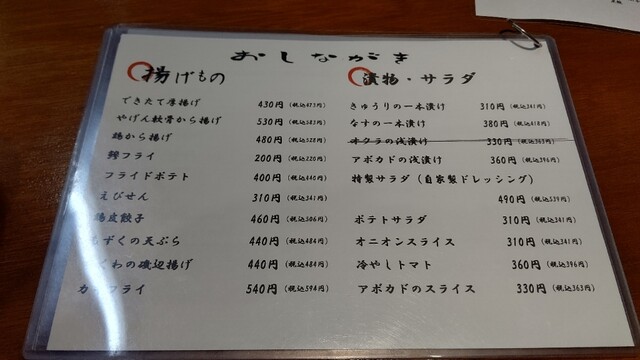 おしながき
揚げもの
できたて厚揚げ 430円(税込473円)
やげん軟骨から揚げ 530円(税込583円)
鶏から揚げ 480円(税込528円)
フライ 200円(税込220円)
フライドポテト 400円(税込440円)
えびせん 310円(税込341円)
鶏皮餃子 460円(税込506円)
もずくの天ぷら 440円(税込484円)
くわの磯辺揚げ 440円(税込484円)
カ フライ 540円(税込594円)
漬物・サラダ
きゅうりの一本漬け 310円(税込341円)
なすの一本漬け 380円(税込418円)
オクラの浅漬け 330円(税込363円)
アボカドの浅漬け 360円(税込396円)
特製サラダ(自家製ドレッシング)
490円(税込539円)
ポテトサラダ 310円(税込341円)
オニオンスライス 310円(税込341円)
冷やしトマト 360円(税込396円)
アボカドのスライス 330円(税込363円)